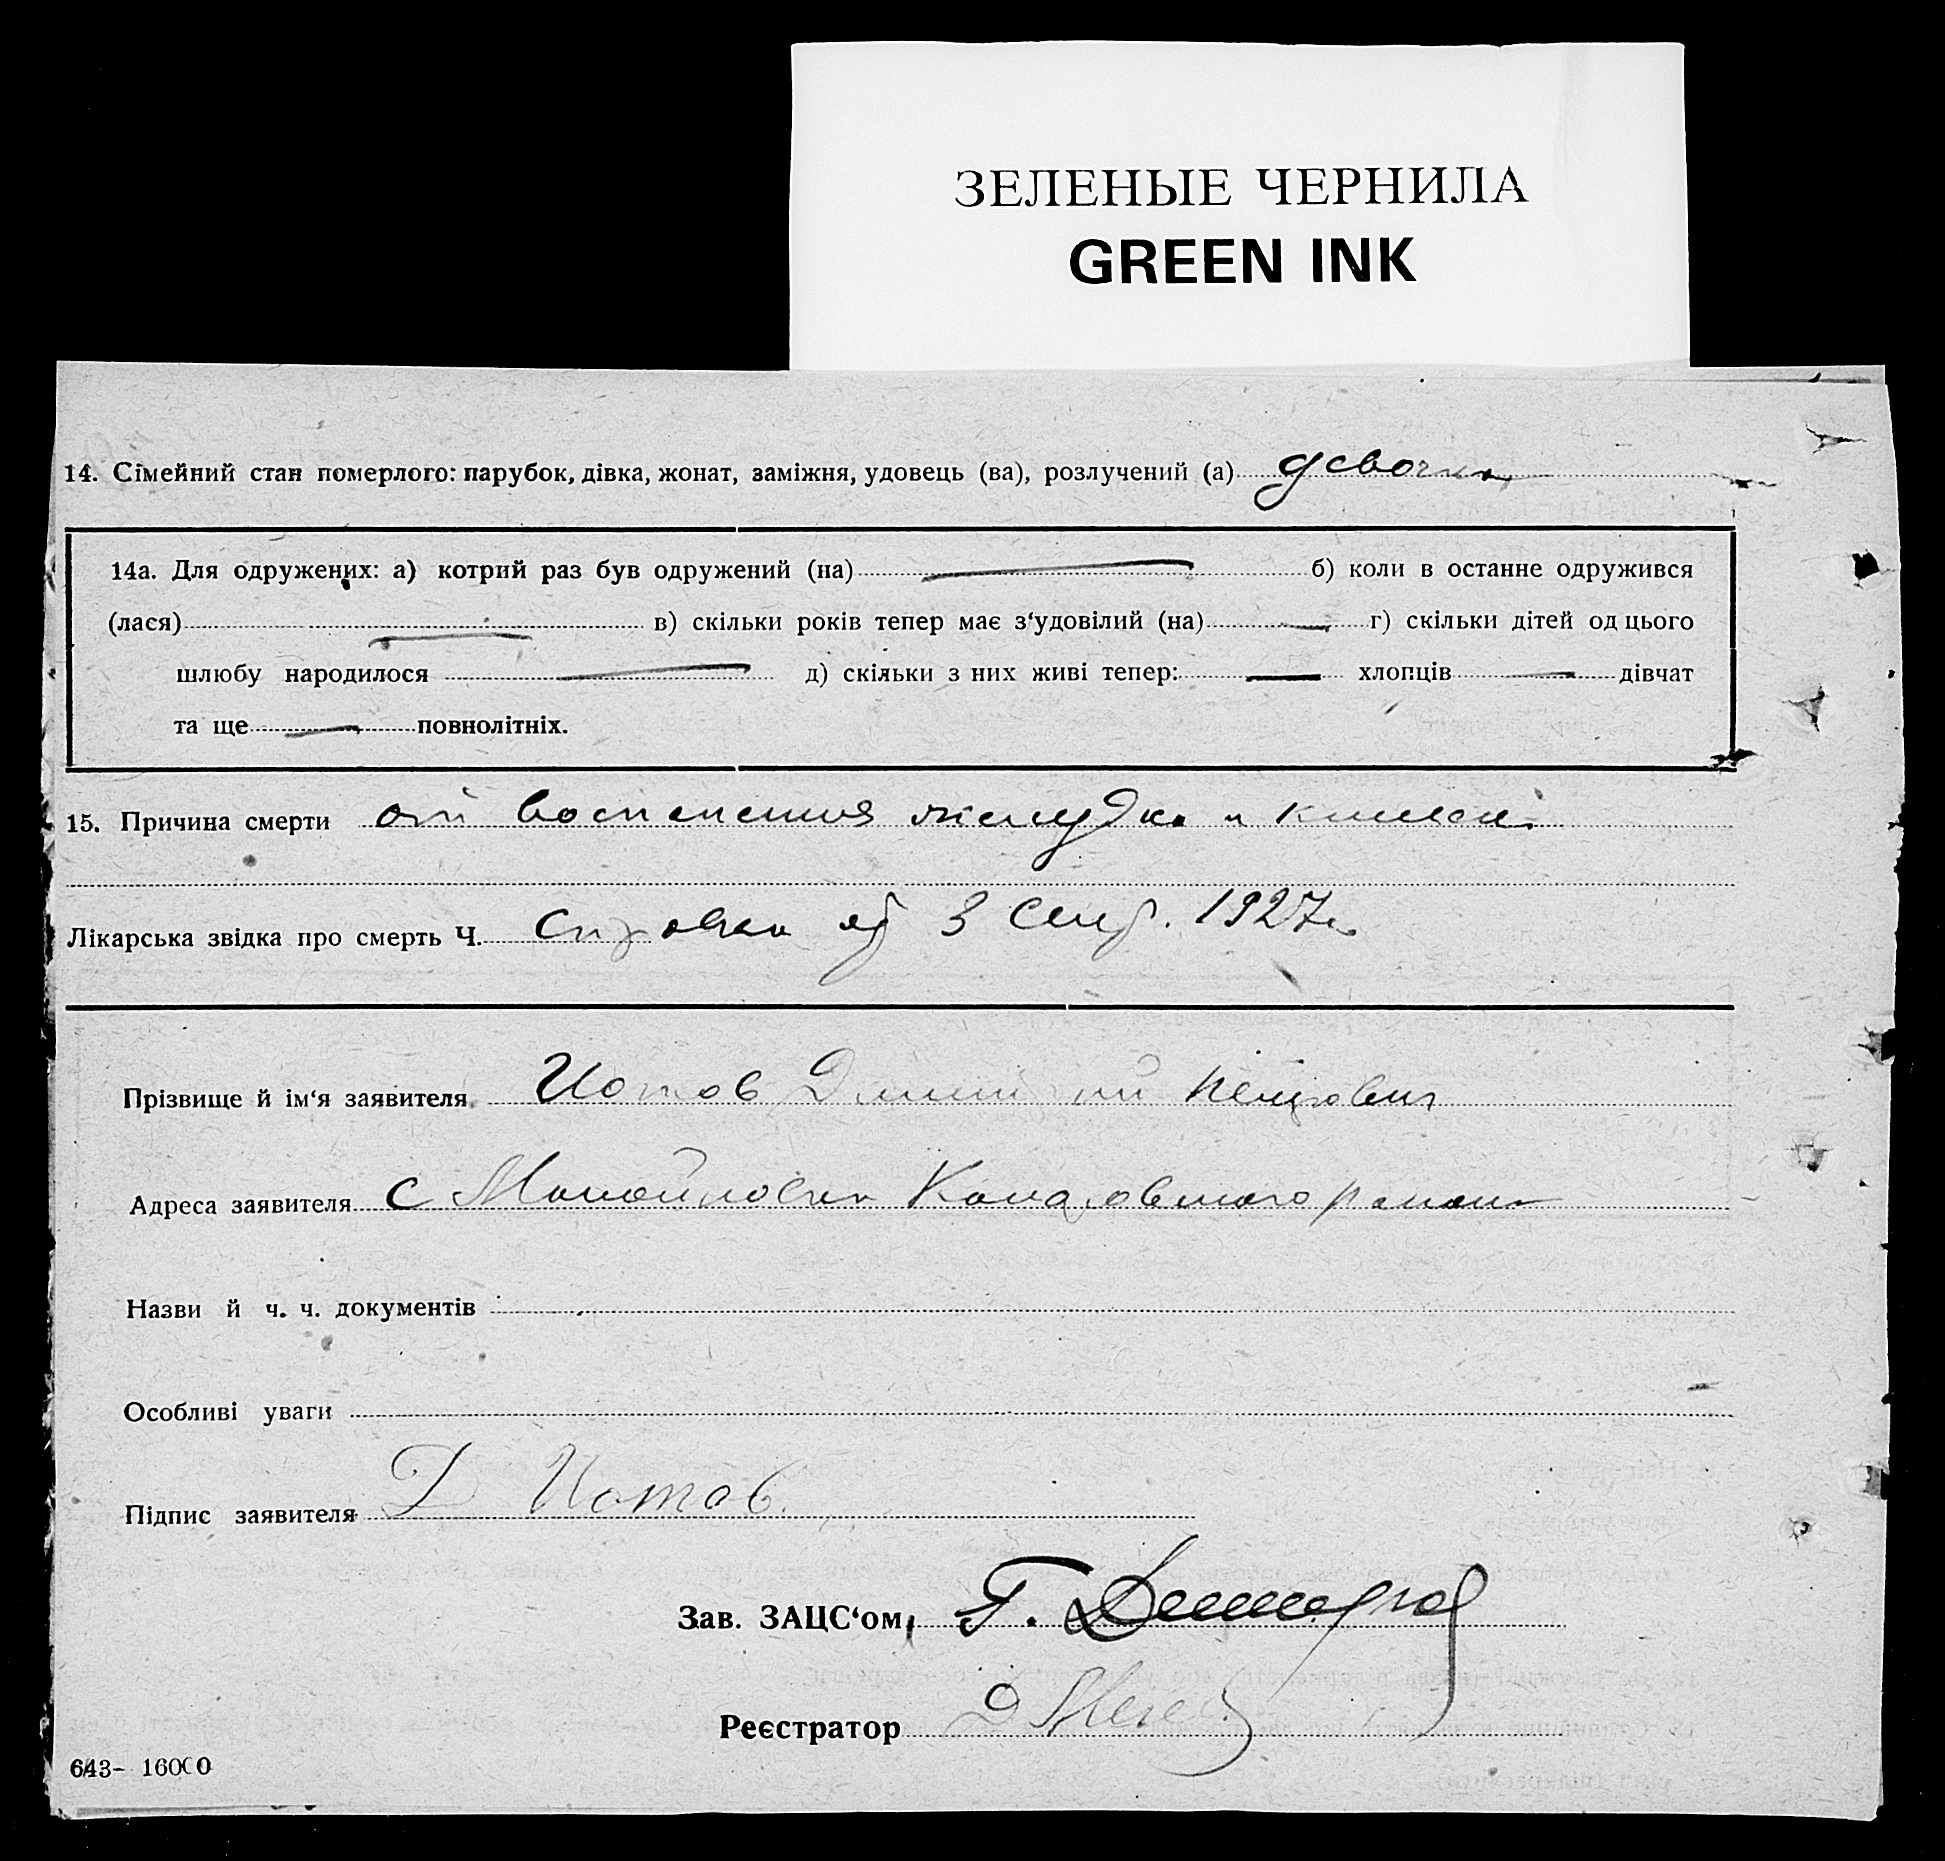 ЗЕЛЕНЫЕ ЧЕРНИЛА
GREEN INK
14. Сімейний стан померлого: парубок, дівка, жонат, заміжня, удовець (ва), розлучений (а) девочка
14а. Для одружених: а) котрий раз був одружений (на) — б) коли в останне одружився
(лася) — в) скільки років тепер має з‘удовілий (на) — г) скільки дітей од цього
шлюбу народилося — д) скільки з них живі тепер: — хлопців — дівчат
та ще — повнолітніх.
15. Причина смерти от воспаления желудка и кишек
Лікарська звідка про смерть Ч. Справка от 3 сент. 1927 г.
Прізвище й ім‘я заявителя Иотов Дмитрий Петрович
Адреса заявителя с Мануйловка района
Назви й ч. ч. документів
Особливі уваги
Підпис заявителя Д Иотов.
Зав. ЗАЦС‘ом, Г.
Реєстратор
643- 16000